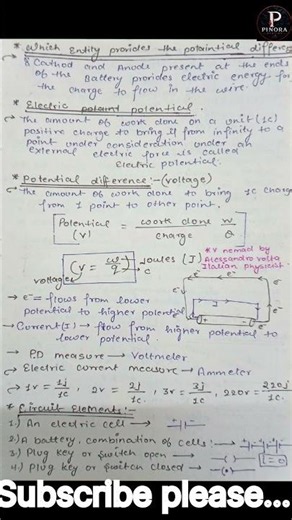 PINORA
* Which entity provides the potaintial differenc
8 Cathod and Anode present at the ends
of the Battery provides electric energy for
the charge to flow in the wire.
* Electric potaint potential.
→ The amount of work done on a unit (1c)
positive charge to bring it from infinity to a
point under consideration under an
external electric force is called
Electric potential.
* Potential difference :- (voltage)
→ The amount of work done to bring 1c charge
from 1 point to other point.
Potential = work done w
(V) charge Q
(v = w/q) Joules (J)
voltage c
*V nemad by
Alessandro volta
Italian physicist
→ e⁻ = flows from lower
potential to higher potential
→ Current (I) → flow from higher potential to
lower potential.
→ P.D measure → Voltmeter
→ Electric current measure → Ammeter
→ 1v = 1j/1c, 2v = 2j/1c, 3v = 3j/1c, 220v = 220j/1c.
* Circuit Elements :-
1.) An electric cell →
2.) A battery, combination of cells :-
3.) Plug key or switch open →
4.) Plug key or switch closed →
I = 0
Subscribe please...